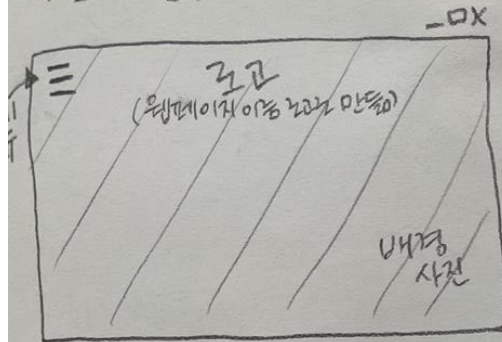 로고
(웹페이지이름 로고로 만들기)
배경
사진